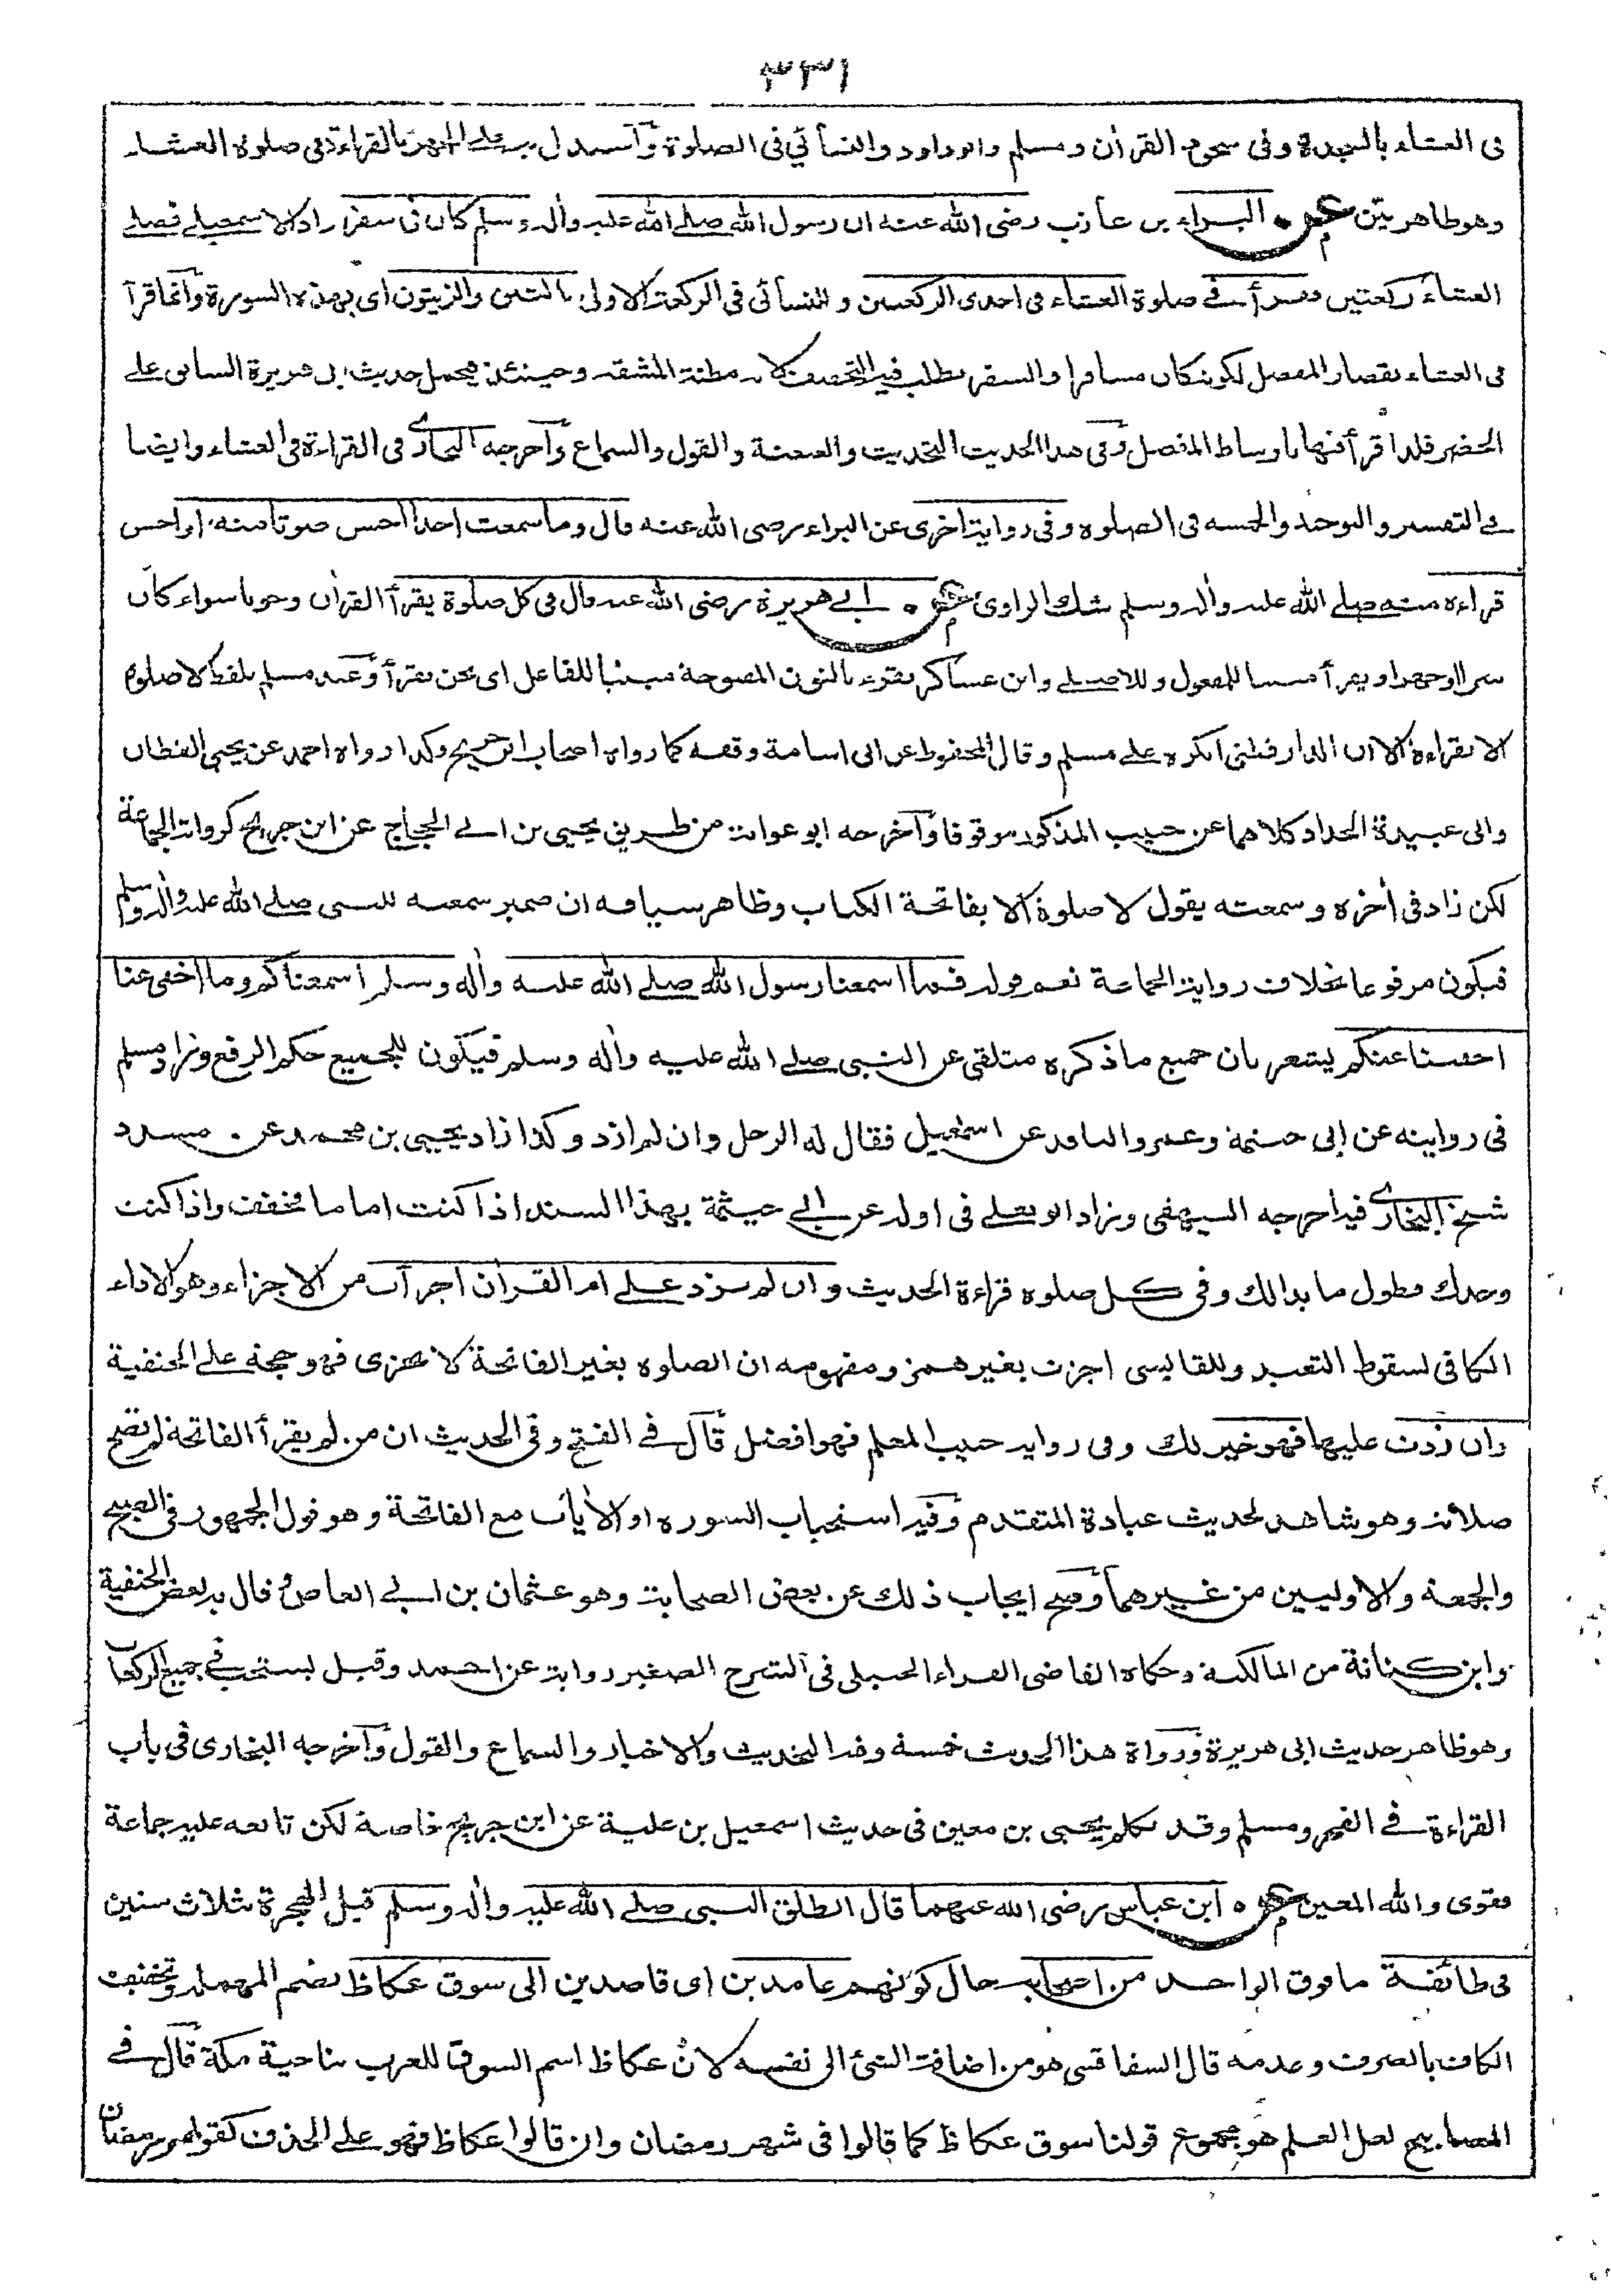 ٣٣١
فى العشاء بالسجدة وفى سجود القرأن ومسلم وابو داود والنسائي فى الصلوة وآستدل به على الجهر بالقراءة فى صلوة العشاء
وهو ظاهر بيّن عن البراء بن عازب رضى الله عنه ان رسول الله صلے الله عليه وأله وسلم كان فى سفر زاد الاسمعيلى فصلے
العشاء ركعتين فقرأ فے صلوة العشاء فى احدى الركعتين وللنسائى فى الركعة الاولى بالتين والزيتون اى بهذه السورة وآنما قرأ
فى العشاء بقصار المفصل لكونه كان مسافرا والسفر يطلب فيه التخفيف لانه مظنة المشقة وحينئذ فيحمل حديث ابى هريرة السابق على
الحضر فلذا قرأ فيها باوساط المفصل وفى هذا الحديث التحديث والعنعنة والقول والسماع وآخرجه البخارى فى القراءة فى العشاء وايضا
فے التفسير والتوحيد والخمسة فى الصلوة وفى رواية اخرى عن البراء رضى الله عنه قال وما سمعت احدا احسن صوتا منه او احسن
قراءة منه صلے الله عليه وأله وسلم شك الراوى عن ابے هريرة رضى الله عنه قال فى كل صلوة يقرأ القرأن وجوبا سواء كان
سرا او جهرا ويقرأ مبنيا للمفعول وللاصيلے وابن عساكر نقرء بالنون المفتوحة مبنيا للفاعل اى نحن نقرأ وعند مسلم بلفظ لا صلوة
الا بقراءة الا ان الدارقطنى انكره على مسلم وقال المحفوظ عن ابى اسامة وقفه كما رواه اصحاب ابن جريج وكذا رواه احمد عن يحيى القطان
وابى عبيدة الحداد كلاهما عن حبيب المذكور موقوفا وآخرجه ابو عوانة من طريق يحيى بن ابے الحجاج عن ابن جريج كرواية الجماعة
لكن زاد فى أخره وسمعته يقول لا صلوة الا بفاتحة الكتاب وظاهر سياقه ان ضمير سمعته للنبى صلے الله عليه وأله وسلم
فيكون مرفوعا بخلاف رواية الجماعة نعم قوله فما اسمعنا رسول الله صلے الله عليه وأله وسلم اسمعناكم وما اخفى عنا
اخفينا عنكم يشعر بان جميع ما ذكره متلقى عن النبى صلے الله عليه وأله وسلم فيكون للجميع حكم الرفع وزاد مسلم
فى روايته عن ابى خيثمة وعمرو الناقد عن اسمعيل فقال له الرجل وان لم ازد وكذا زاد يحيى بن محمد عن مسدد
شيخ البخارى فيما اخرجه البيهقى وزاد ابو يعلے فى اوله عن ابے خيثمة بهذا السند اذا كنت اماما فخفف واذا كنت
وحدك فطول ما بدا لك وفى كل صلوة قراءة الحديث وان لم تزد علے ام القرأن اجزأت من الاجزاء وهو الاداء
الكافى لسقوط التعبد وللقابسى اجزت بغير همز ومفهومه ان الصلوة بغير الفاتحة لا تجزى فهو حجة على الحنفية
وان زدت عليها فهو خير لك وفى رواية حبيب المعلم فهو افضل قآل فے الفتح وفى الحديث ان من لم يقرأ الفاتحة لم تصح
صلاته وهو شاهد لحديث عبادة المتقدم وفيه استحباب السورة او الأيات مع الفاتحة وهو قول الجمهور فى الصبح
والجمعة والاوليين من غيرهما وصح ايجاب ذلك عن بعض الصحابة وهو عثمان بن ابے العاص وقال به بعض الحنفية
وابن كنانة من المالكية وحكاه القاضى الفراء الحنبلى فى الشرح الصغير رواية عن احمد وقيل يستحب فے جميع الركعات
وهو ظاهر حديث ابى هريرة ورواة هذا الحديث خمسة وفيه التحديث والاخبار والسماع والقول وآخرجه البخارى فى باب
القراءة فے الفجر ومسلم وقد تكلم يحيى بن معين فى حديث اسمعيل بن علية عن ابن جريج خاصة لكن تابعه عليه جماعة
فقوى والله المعين عن ابن عباس رضى الله عنهما قال انطلق النبى صلے الله عليه وأله وسلم قبل الهجرة بثلاث سنين
فى طائفة ما فوق الواحد من اصحابه حال كونهم عامدين اى قاصدين الى سوق عكاظ بضم المهملة وتخفيف
الكاف بالصرف وعدمه قال السفاقسى هو من اضافة الشئ الى نفسه لان عكاظ اسم السوق للعرب بناحية مكة قآل فے
المصابيح لعل العلم هو مجموع قولنا سوق عكاظ كما قالوا فى شهر رمضان وان قالوا عكاظ فهو على الحذف كقولهم رمضان